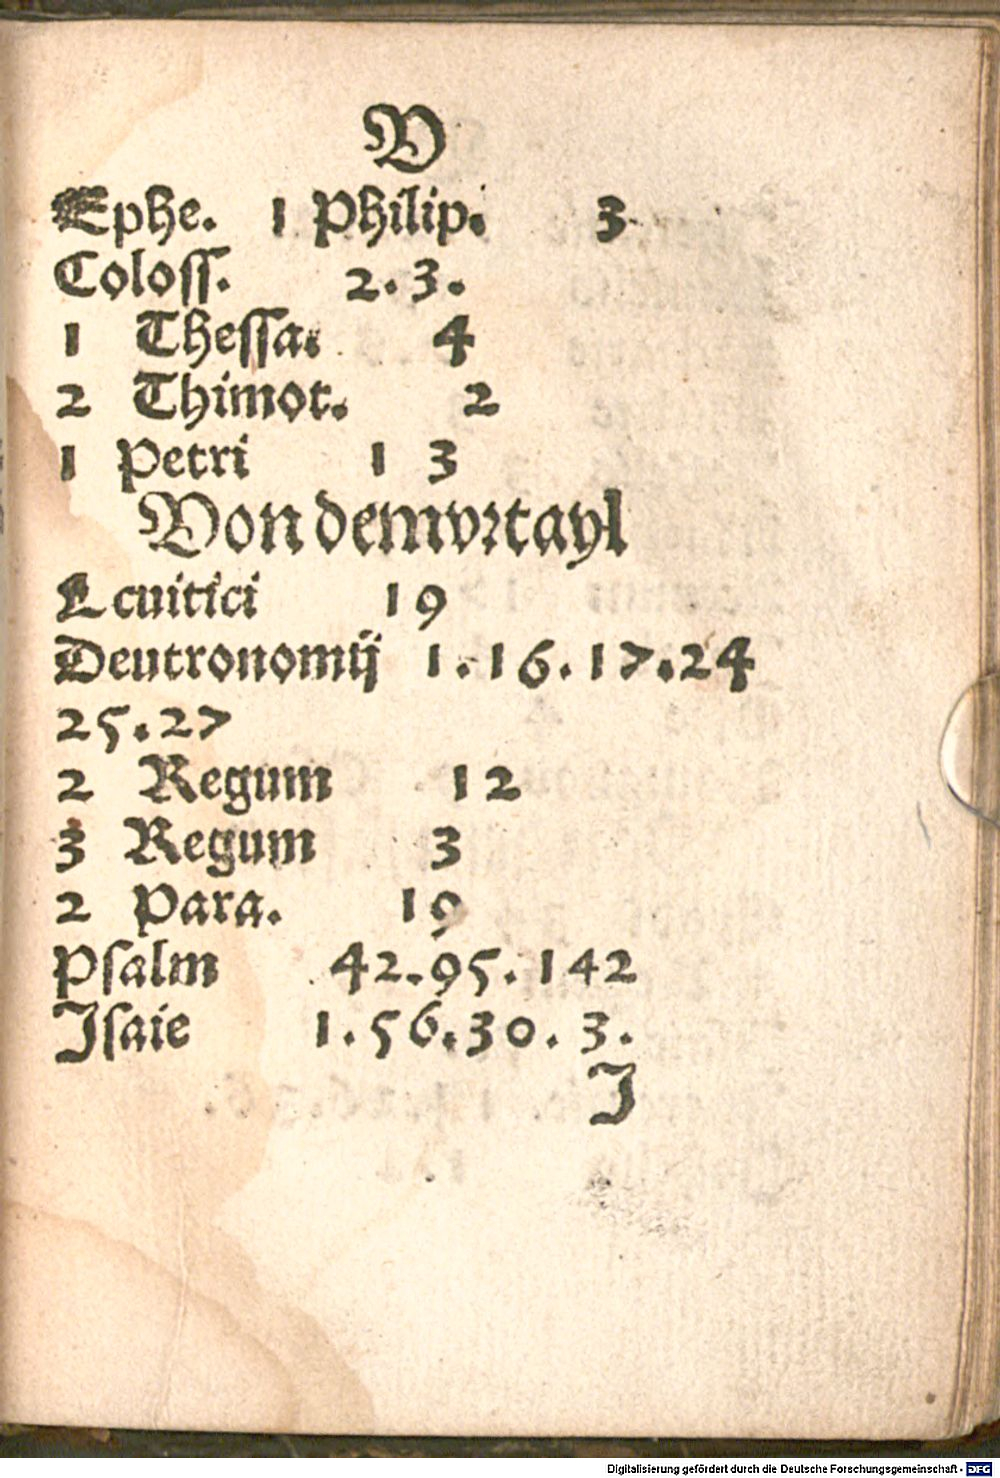 V
Ephe. 1 Philip. 3
Coloſſ. 2.3.
1 Theſſa. 4
2 Thimot. 2
1 Petri 1 3
Von dem vꝛtayl
Leuitici 19
Deutronomij 1.16.17.24
25.27
2 Regum 12
3 Regum 3
2 Para. 19
Pſalm 42.95.142
Jſaie 1.56.30.3.
J
Digitalisierung gefördert durch die Deutsche Forschungsgemeinschaft - DFG